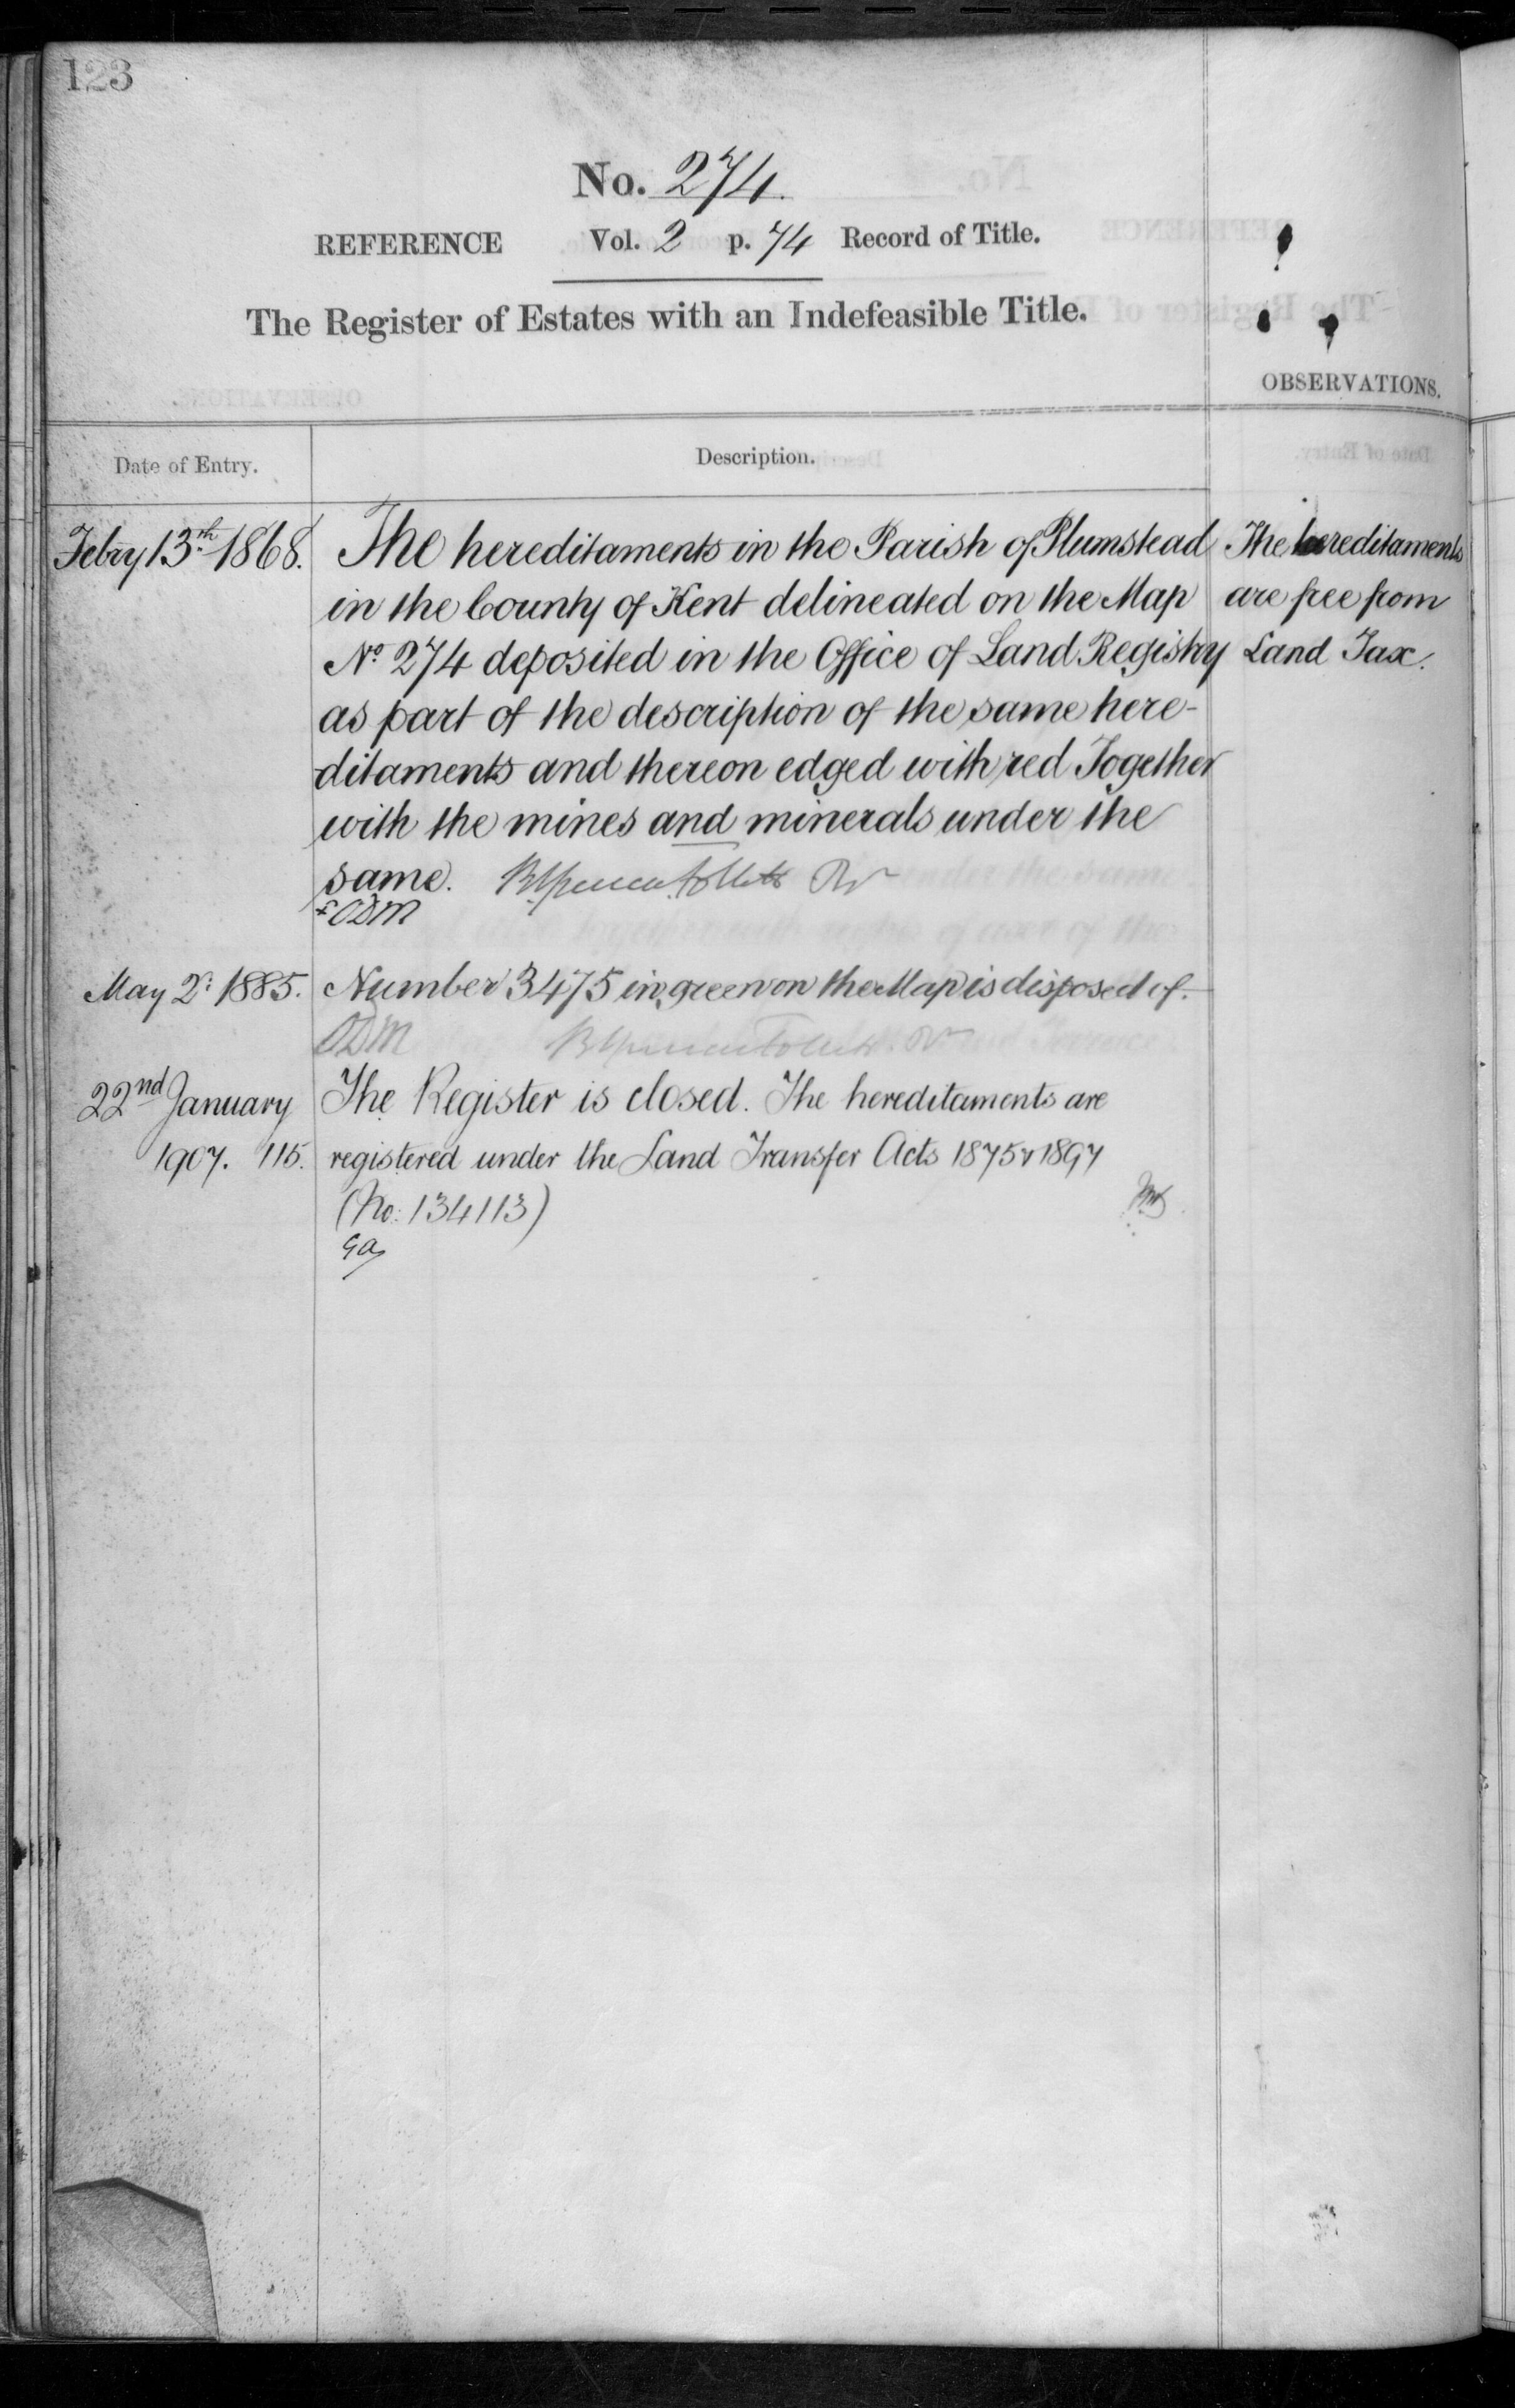 123
No. 274.
REFERENCE Vol. 2 p. 74 Record of Title.
The Register of Estates with an Indefeasible Title.
OBSERVATIONS.
Date of Entry. Description.
Febry 13th 1868. The hereditaments in the Parish of Plumstead
in the County of Kent delineated on the Map
No 274 deposited in the Office of Land Registry
as part of the description of the same here-
ditaments and thereon edged with red Together
with the mines and minerals under the
same.
ODM
The hereditaments
are free from
Land Tax.
May 2d 1885. Number 3475 in green on the Map is disposed of.
ODM
22nd January The Register is closed. The hereditaments are
1907. 115. registered under the Land Transfer Acts 1875 & 1897
(No: 134113)